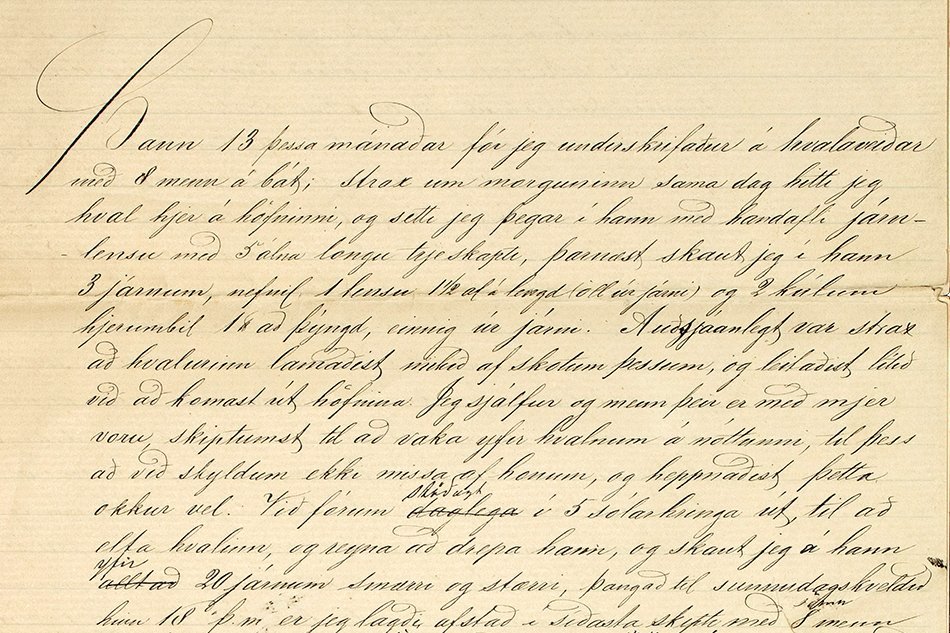 Þann 13 þessa mánaðar fór jeg undirskrifaður á hvalaveiðar
með 8 menn á bát; strax um morguninn sama dag hitti jeg
hval hjer á höfninni, og setti jeg þegar í hann með handafli járn-
-lensu með 5 álna löngu trjeskapti, þarnæst skaut jeg í hann
3 járnum, nefnil. 1 lensu 1 1/2 al á lengd (öll úr járni) og 2 kúlum
hjerumbil 1 ℔ að þýngd, einnig úr járni. Auðsjáanlegt var strax
að hvalurinn lamaðist mikið af skotum þessum, og leitaðist lítið
við að komast út höfnina. Jeg sjálfur og menn þeir er með mjer
voru, skiptumst til að vaka yfir hvalnum á nóttunni, til þess
að við skyldum ekki missa af honum, og heppnaðist þetta
okkur vel. Við fórum daglega stöðugt í 5 sólarhringa út, til að
elta hvalinn, og reyna að drepa hann, og skaut jeg á hann
allt að yfir 20 járnum smærri og stærri, þangað til sunnudagskveldið
hinn 18 þ.m. er jeg lagði afstað í síðasta skipti með 8 menn